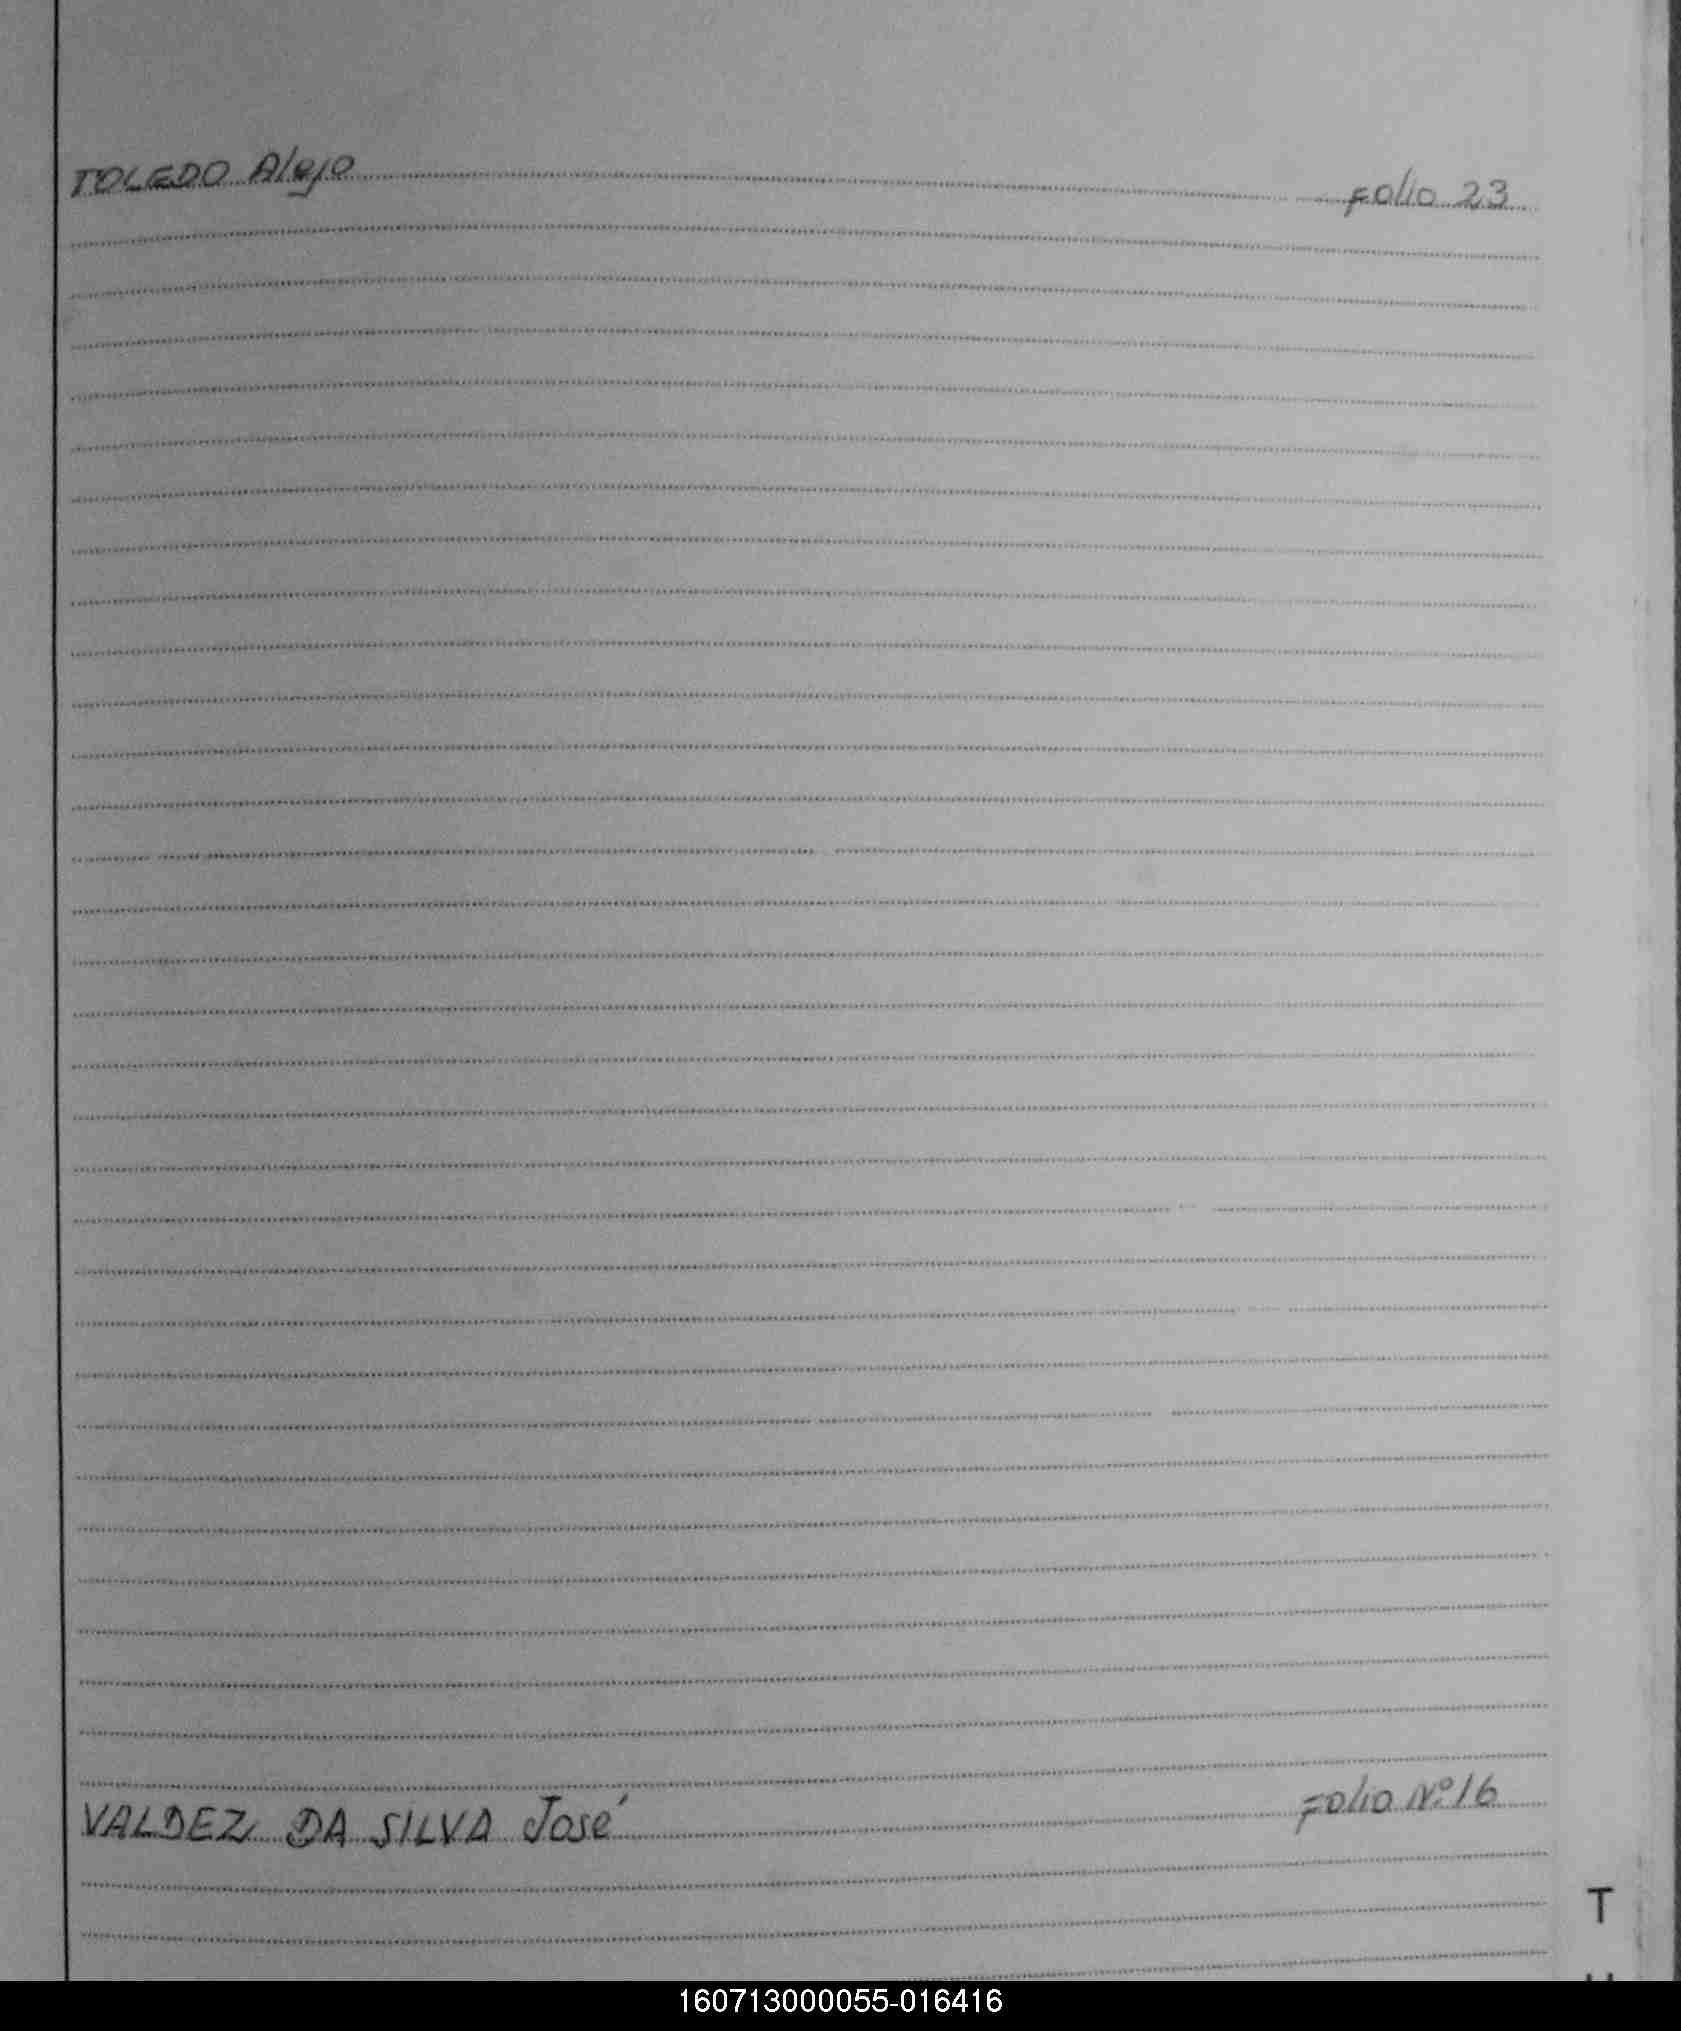 TOLEDO Alejo Folio 23
VALDEZ DA SILVA José Folio Nº 16
T
160713000055-016416